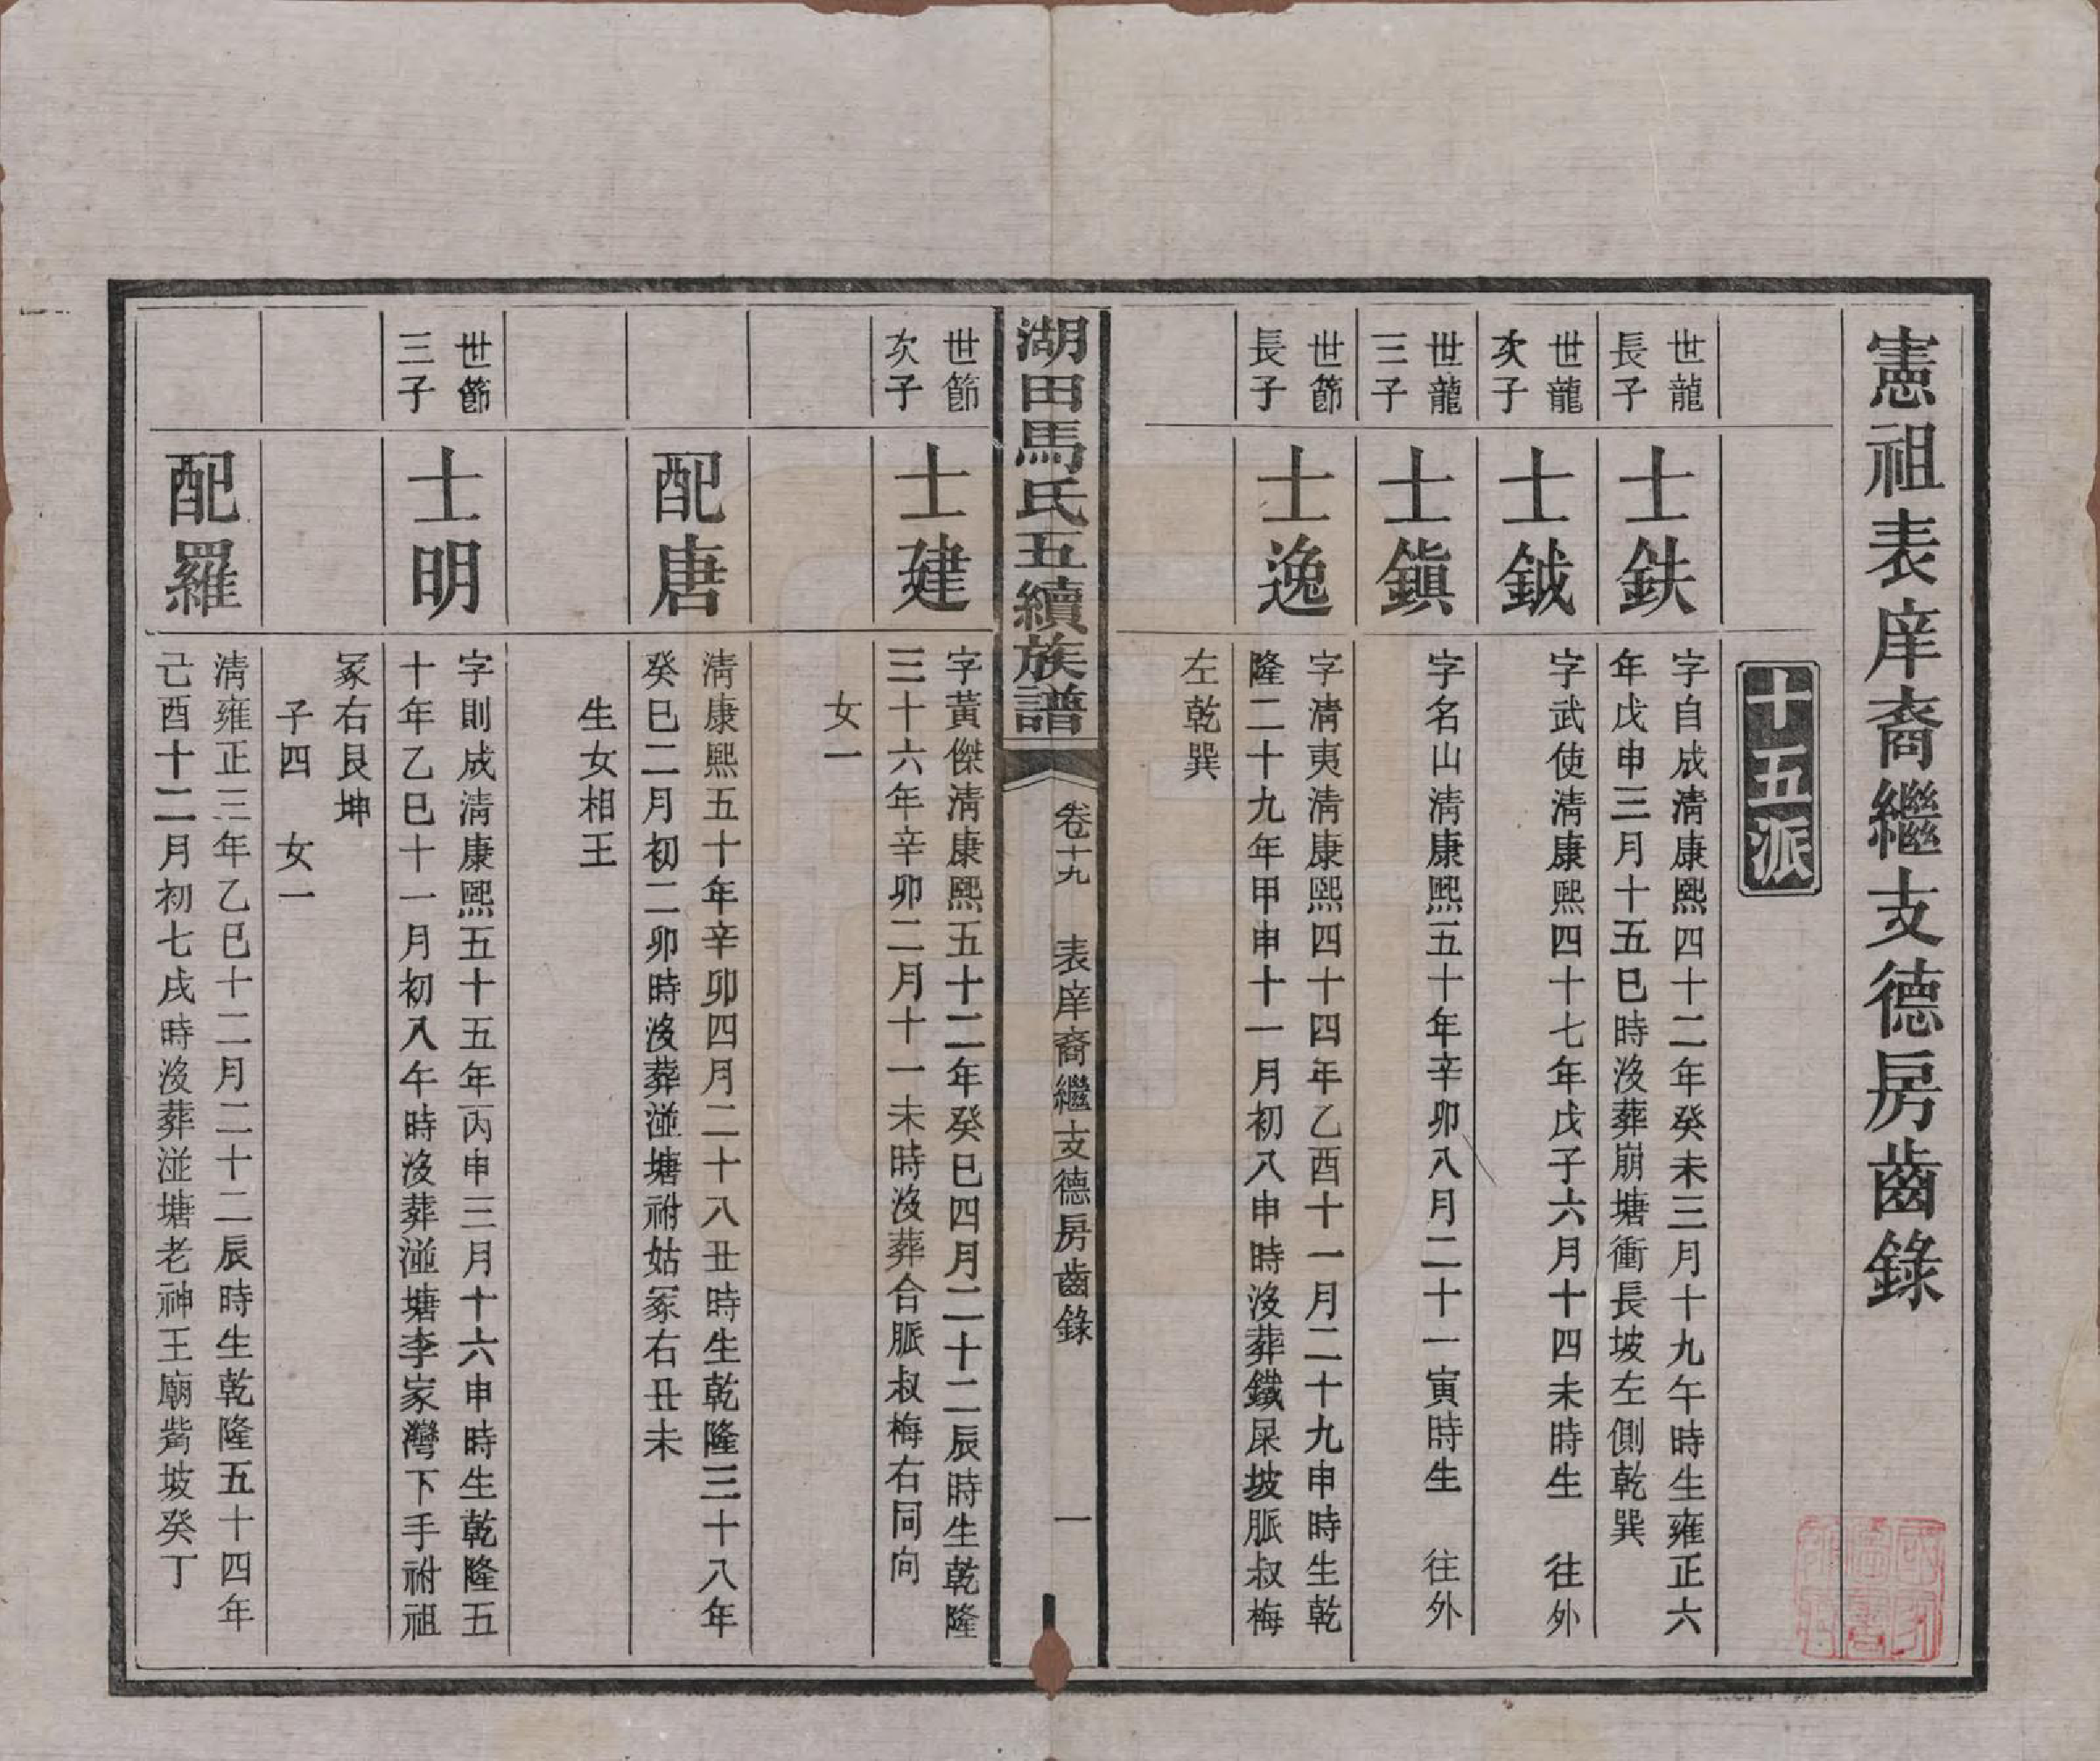 憲祖表庠裔繼支德房齒錄
十五派
世龍
長子
士鉄
字自成淸康熙四十二年癸未三月十九午時生雍正六
年戊申三月十五巳時沒葬崩塘衝長坡左側乾巽
世龍
次子
士鉞
字武使淸康熙四十七年戊子六月十四未時生 往外
世龍
三子
士鎭
字名山淸康熙五十年辛卯八月二十一寅時生 往外
世節
長子
士逸
字淸夷淸康熙四十四年乙酉十一月二十九申時生乾
隆二十九年甲申十一月初八申時沒葬鐵屎坡脈叔梅
左乾巽
湖田馬氏五續族譜
卷十九 表庠裔繼支德房齒錄 一
世節
次子
士建
字黃傑淸康熙五十二年癸巳四月二十二辰時生乾隆
三十六年辛卯二月十一未時沒葬合脈叔梅右同向
女一
配唐
淸康熙五十年辛卯四月二十八丑時生乾隆三十八年
癸巳二月初二卯時沒葬湴塘祔姑冢右丑未
生女相王
世節
三子
士明
字則成淸康熙五十五年丙申三月十六申時生乾隆五
十年乙巳十一月初八午時沒葬湴塘李家灣下手祔祖
冢右艮坤
子四 女一
配羅
淸雍正三年乙巳十二月二十二辰時生乾隆五十四年
己酉十二月初七戌時沒葬湴塘老神王廟嵴坡癸丁